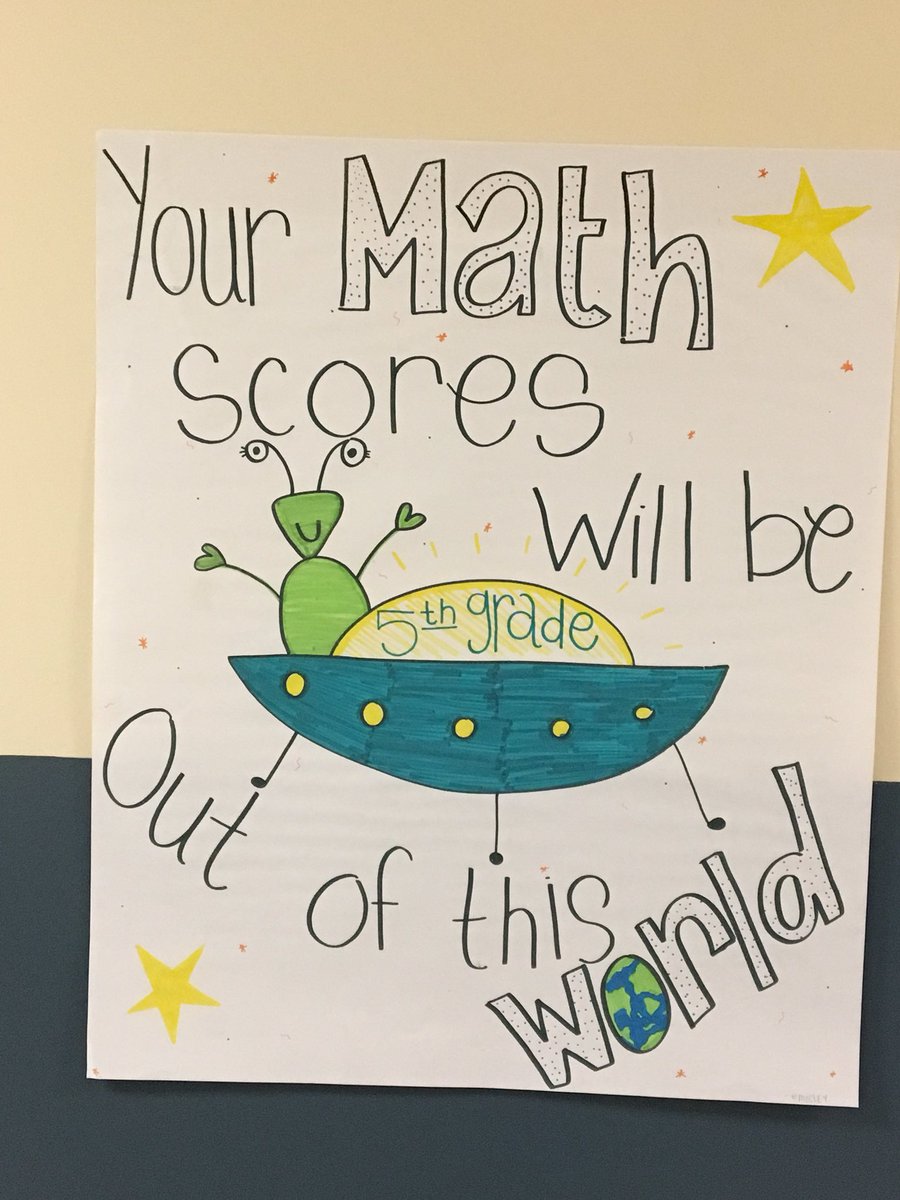 Your Math
scores
Will be
5th grade
Out
of this
World